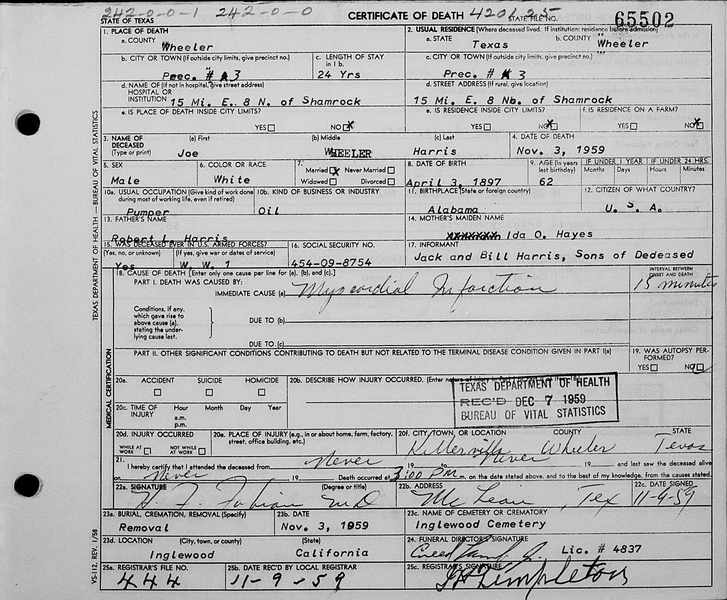 242-0-0-1 242-0-0
STATE OF TEXAS
CERTIFICATE OF DEATH
420125
STATE FILE NO.
65502
1. PLACE OF DEATH
2. USUAL RESIDENCE (Where deceased lived. If institution: residence before admission)
a. COUNTY
Wheeler
a. STATE
Texas
b. COUNTY
Wheeler
b. CITY OR TOWN (If outside city limits, give precinct no.)
Prec. # 3
c. LENGTH OF STAY in 1 b.
24 Yrs
c. CITY OR TOWN (If outside city limits, give precinct no.)
Prec. # 3
d. NAME OF (If not in hospital, give street address) HOSPITAL OR INSTITUTION
15 Mi. E. 8 N. of Shamrock
d. STREET ADDRESS (If rural, give location)
15 Mi. E. 8 Nb. of Shamrock
e. IS PLACE OF DEATH INSIDE CITY LIMITS?
YES NO X
e. IS RESIDENCE INSIDE CITY LIMITS?
YES NO X
f. IS RESIDENCE ON A FARM?
YES NO X
3. NAME OF DECEASED (Type or print)
(a) First
Joe
(b) Middle
WHEELER
(c) Last
Harris
4. DATE OF DEATH
Nov. 3, 1959
5. SEX
Male
6. COLOR OR RACE
White
7.
Married X Never Married
Widowed Divorced
8. DATE OF BIRTH
April 3, 1897
9. AGE (In years last birthday)
62
IF UNDER 1 YEAR
Months Days
IF UNDER 24 HRS.
Hours Minutes
10a. USUAL OCCUPATION (Give kind of work done during most of working life, even if retired)
Pumper
10b. KIND OF BUSINESS OR INDUSTRY
Oil
11. BIRTHPLACE (State or foreign country)
Alabama
12. CITIZEN OF WHAT COUNTRY?
U. S. A.
13. FATHER'S NAME
Robert L. Harris
14. MOTHER'S MAIDEN NAME
Ida O. Hayes
15. WAS DECEASED EVER IN U.S. ARMED FORCES?
(Yes, no, or unknown)
Yes
(If yes, give war or dates of service)
W. W. 1
16. SOCIAL SECURITY NO.
454-09-8754
17. INFORMANT
Jack and Bill Harris, Sons of Dedeased
18. CAUSE OF DEATH [Enter only one cause per line for (a), (b), and (c).]
INTERVAL BETWEEN ONSET AND DEATH
PART I. DEATH WAS CAUSED BY:
IMMEDIATE CAUSE (a)
Myocardial Infarction
15 minutes
Conditions, if any, which gave rise to above cause (a), stating the underlying cause last.
DUE TO (b)
DUE TO (c)
PART II. OTHER SIGNIFICANT CONDITIONS CONTRIBUTING TO DEATH BUT NOT RELATED TO THE TERMINAL DISEASE CONDITION GIVEN IN PART I(a)
19. WAS AUTOPSY PERFORMED?
YES NO
20a. ACCIDENT SUICIDE HOMICIDE
20b. DESCRIBE HOW INJURY OCCURRED.
TEXAS DEPARTMENT OF HEALTH
REC'D DEC 7 1959
BUREAU OF VITAL STATISTICS
20c. TIME OF INJURY
Hour Month Day Year
a.m.
p.m.
20d. INJURY OCCURRED
WHILE AT WORK NOT WHILE AT WORK
20e. PLACE OF INJURY (e.g., in or about home, farm, factory, street, office building, etc.)
20f. CITY, TOWN, OR LOCATION
COUNTY
Wheeler
STATE
Texas
21. I hereby certify that I attended the deceased from Never 19 to Never 19 and last saw the deceased alive
on Never 19 Death occurred at 3:00 Pm. m. on the date stated above, and to the best of my knowledge, from the causes stated.
22a. SIGNATURE
(Degree or title)
Fabian MD
22b. ADDRESS
McLean, Tex
22c. DATE SIGNED
11-9-59
23a. BURIAL, CREMATION, REMOVAL (Specify)
Removal
23b. DATE
Nov. 3, 1959
23c. NAME OF CEMETERY OR CREMATORY
Inglewood Cemetery
23d. LOCATION (City, town, or county) (State)
Inglewood California
24. FUNERAL DIRECTOR'S SIGNATURE
Lic. # 4837
25a. REGISTRAR'S FILE NO.
444
25b. DATE REC'D BY LOCAL REGISTRAR
11-9-59
25c. REGISTRAR'S SIGNATURE
Templeton
TEXAS DEPARTMENT OF HEALTH — BUREAU OF VITAL STATISTICS
MEDICAL CERTIFICATION
VS-112, REV. 1/58